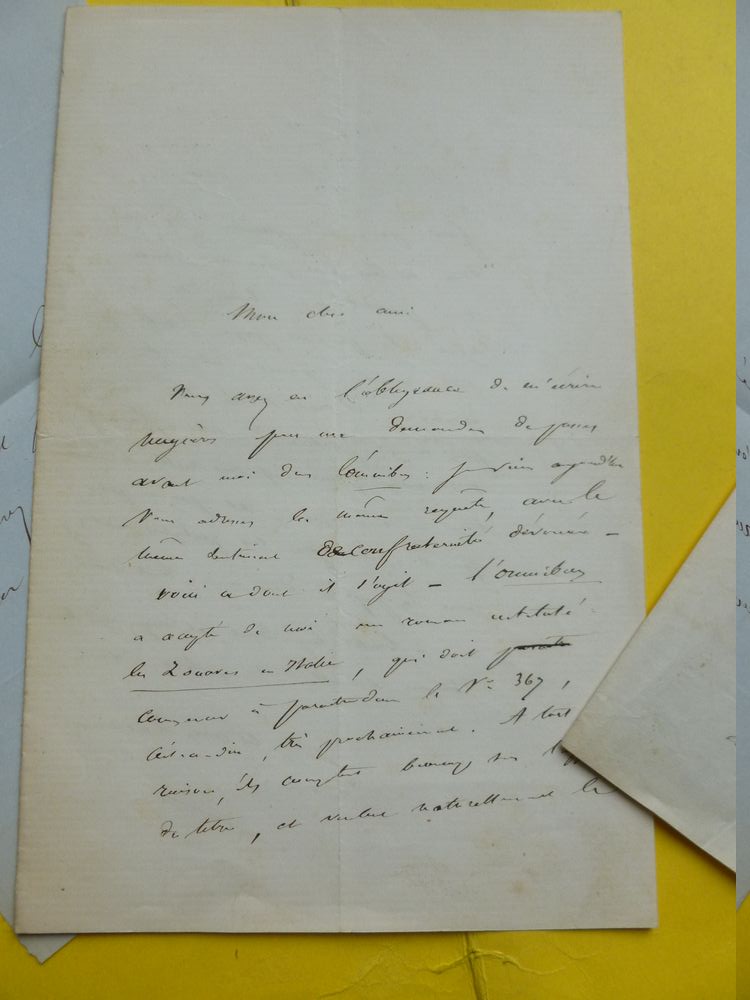 Mon cher ami
Vous avez eu l'obligeance de m'écrire
naguères pour me demander de passer
avant moi dans l'omnibus : je viens aujourd'hui
vous adresser la même requête, avec le
même sentiment de confraternité dévouée —
voici ce dont il s'agit — l'omnibus
a accepté de moi un roman intitulé
les Zouaves en Italie, qui doit
commencer à paraitre dans le N° 367,
c'est-à-dire, très prochainement. A tort
raison, ils comptent beaucoup sur
du titre, et veulent naturellement le